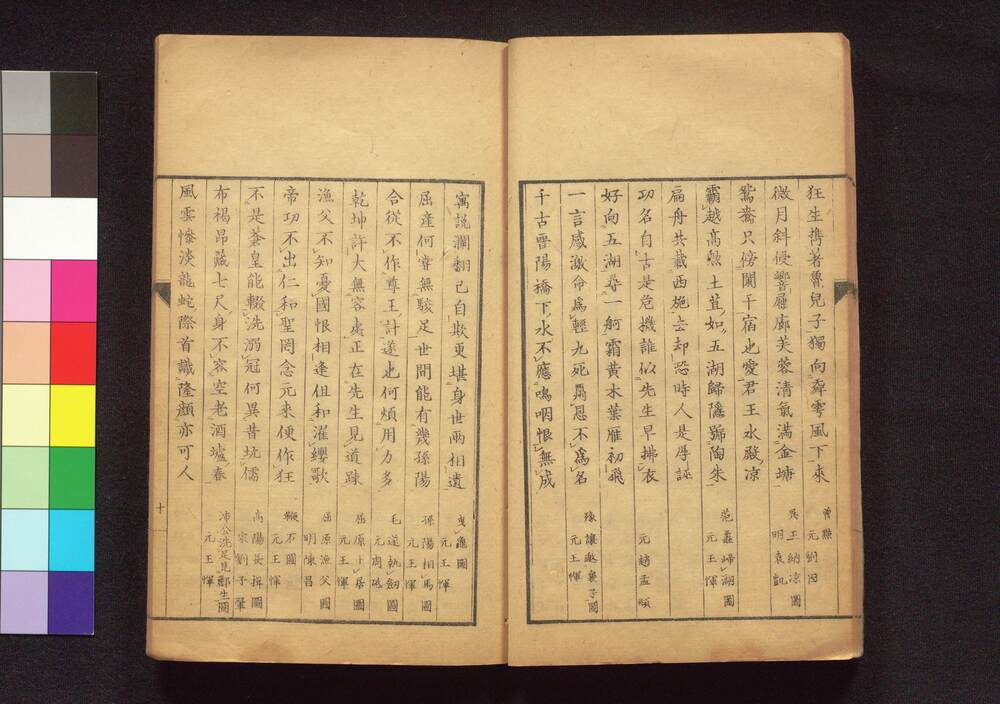 狂生携著魯兒子獨向舞雩風下來
曾點
元劉因
微月斜侵響屧廊芙蓉清氣滿金塘
吳王納凉圖
明袁凱
鴛鴦只傍闌干宿也愛君王水殿凉
霸越高勲土苴如五湖歸隱號陶朱
范蠡歸湖圖
元王惲
扁舟共載西施去却恐時人是厚誣
功名自古是危機誰似先生早拂衣
元趙孟頫
好向五湖尋一舸霜黄木葉雁初飛
一言感激命爲輕九死酬恩不爲名
豫讓襄子圖
元王惲
千古晉陽橋下水不應嗚咽恨無成
寓説瀾翻已自欺更堪身世兩相遺
曳龜圖
元王惲
屈産何嘗無駿足世間能有幾孫陽
孫陽相馬圖
元王惲
合從不作尊王計遂也何煩用力多
毛遂執劔圖
元周砥
乾坤許大無容處正在先生見道踈
屈原卜居圖
元王惲
漁父不知憂國恨相逢但和濯纓歌
屈原漁父圖
明陳昌
帝功不出仁和聖罔念元來便作狂
鞭石圖
元王惲
不是蒼皇能輟洗溺冠何異昔坑儒
高陽長揖圖
宋劉子翬
布褐昂藏七尺身不容空老酒壚春
沛公洗足見酈生圖
元王惲
風雲慘淡龍蛇際首識隆顔亦可人
十